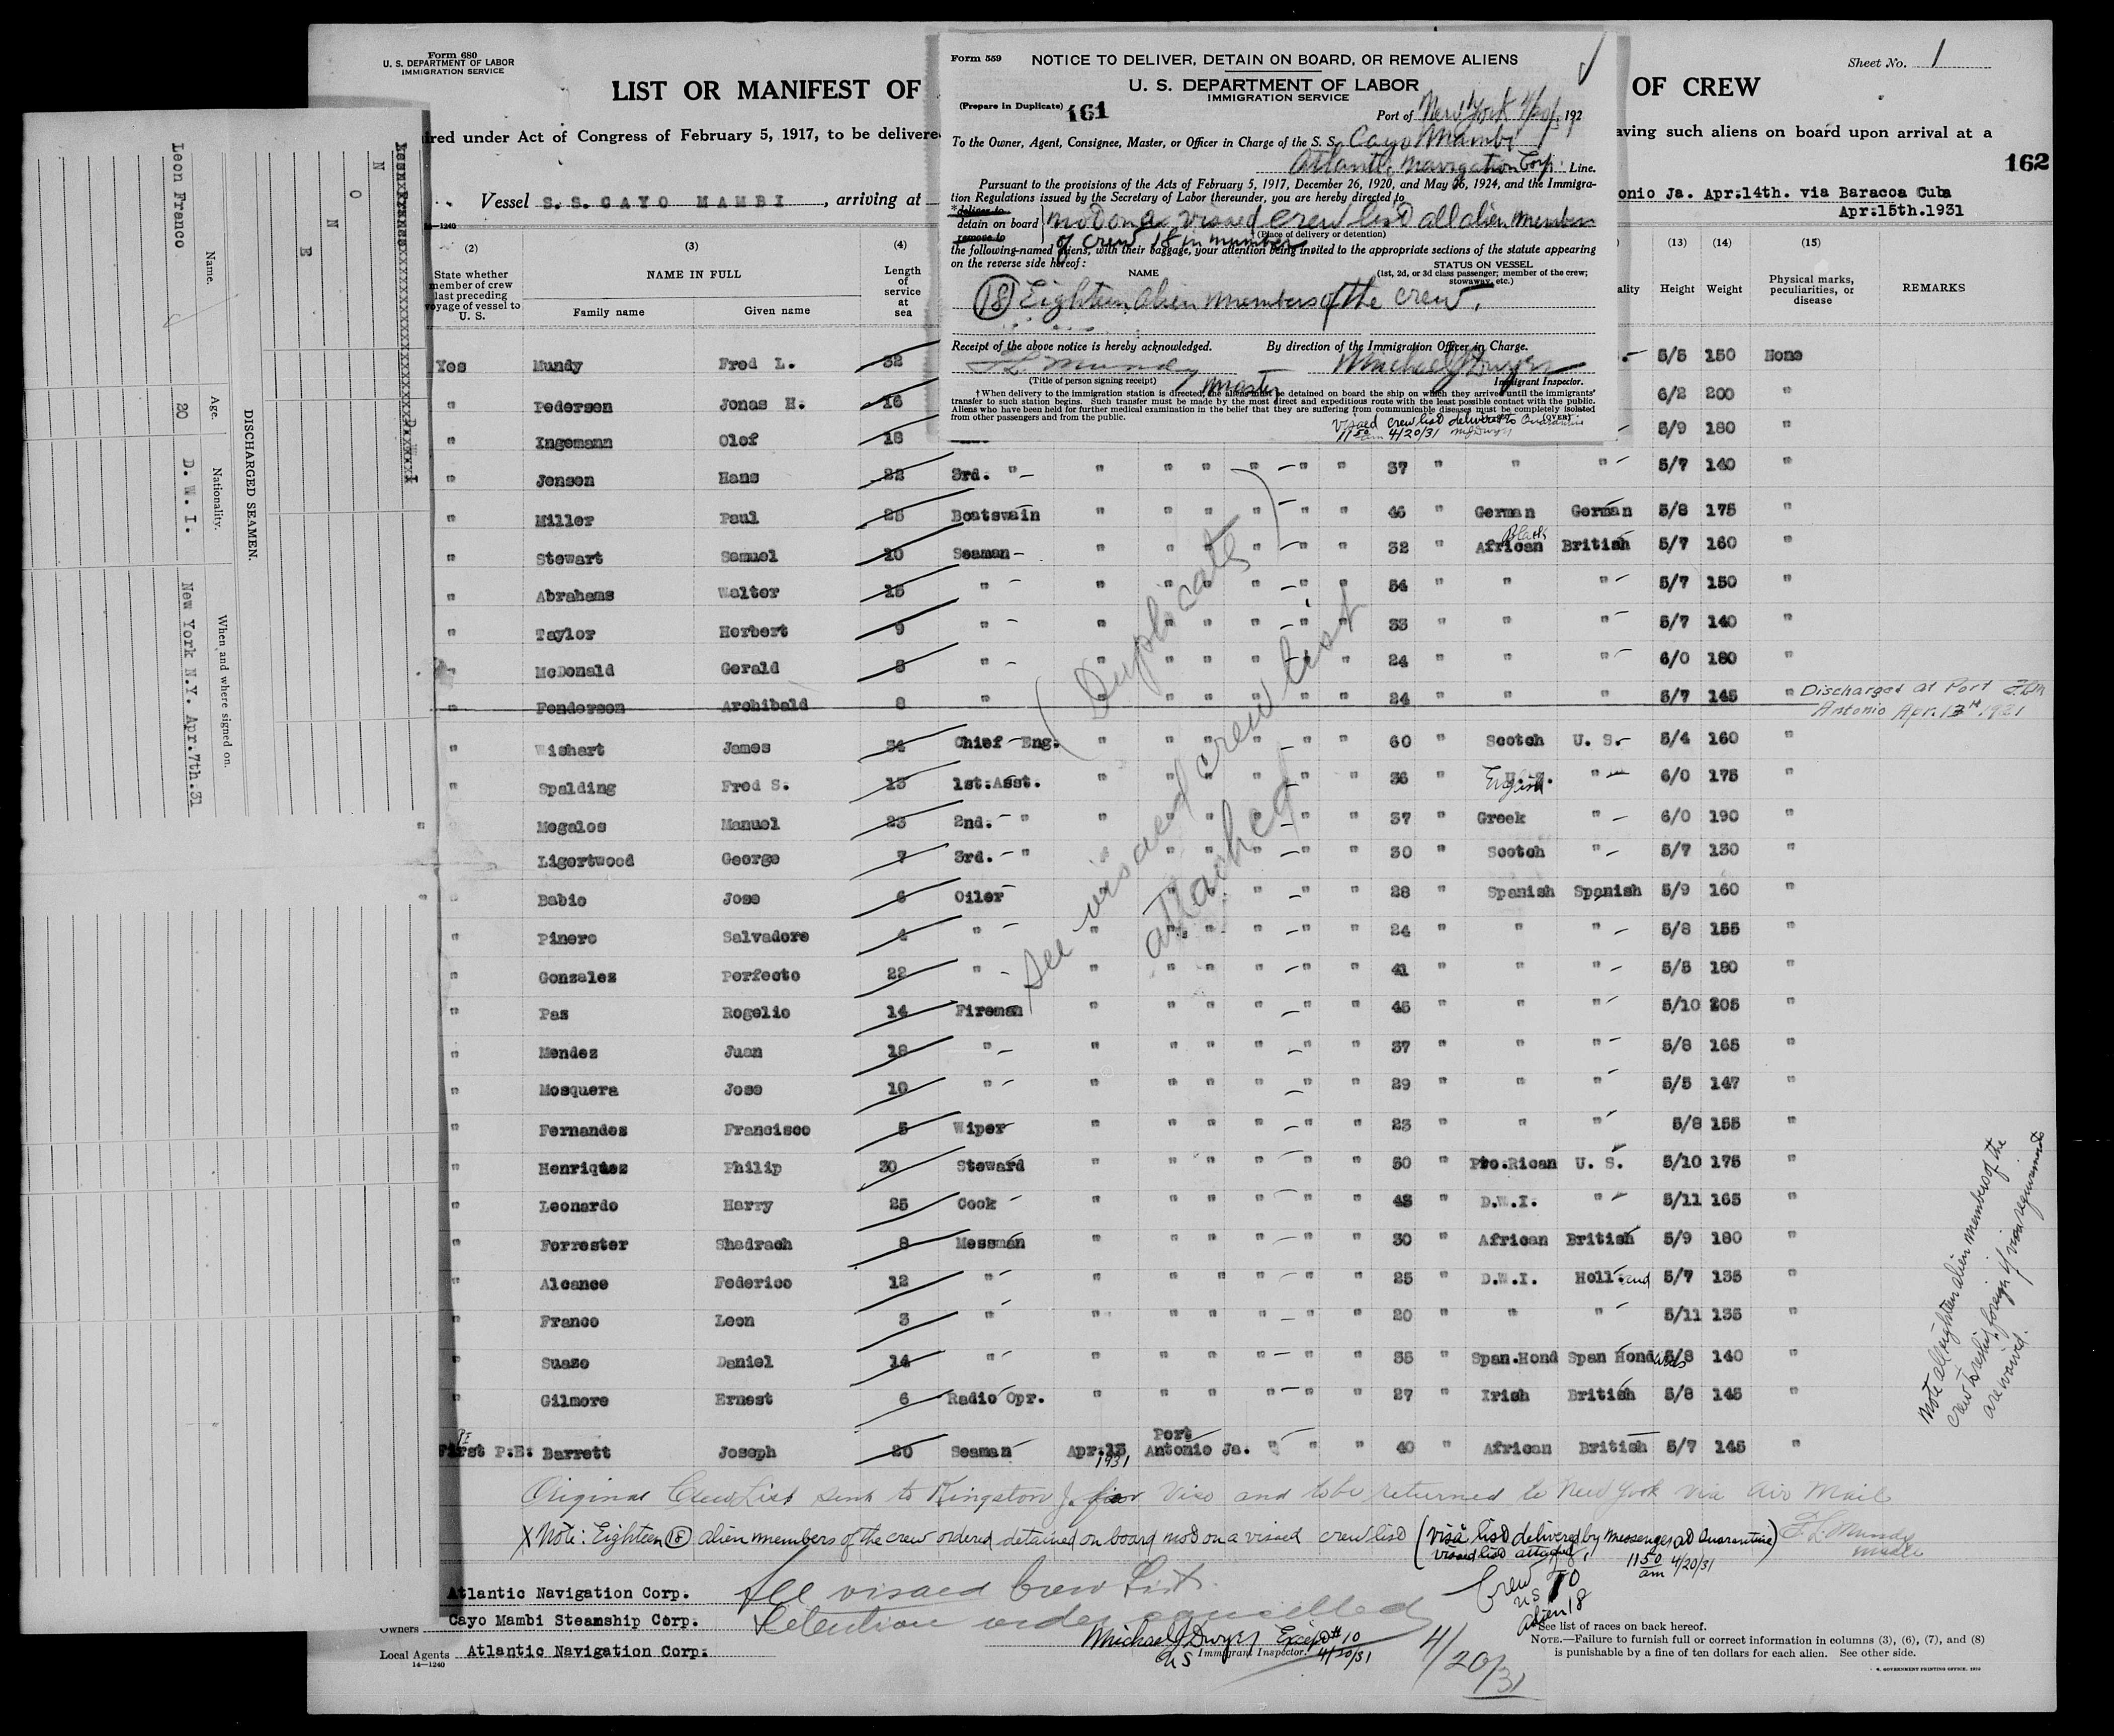 Form 680
U. S. DEPARTMENT OF LABOR
IMMIGRATION SERVICE
LIST OR MANIFEST OF
OF CREW
Sheet No. 1
ired under Act of Congress of February 5, 1917, to be delivere
aving such aliens on board upon arrival at a
162
Vessel S.S. CAYO MAMBI, arriving at
onio Ja. Apr.14th. via Baracoa Cuba
Apr.15th.1931
Form 559
NOTICE TO DELIVER, DETAIN ON BOARD, OR REMOVE ALIENS
U. S. DEPARTMENT OF LABOR
IMMIGRATION SERVICE
(Prepare in Duplicate) 161
Port of New York 4/20/, 1931
To the Owner, Agent, Consignee, Master, or Officer in Charge of the S. S. Cayo Mambi
Atlantic Navigation Corp. Line.
Pursuant to the provisions of the Acts of February 5, 1917, December 26, 1920, and May 26, 1924, and the Immigra-
tion Regulations issued by the Secretary of Labor thereunder, you are hereby directed to
*deliver to
detain on board
remove to
not on a visaed crew list all alien members
of crew 18 in number
(Place of delivery or detention)
the following-named aliens, with their baggage, your attention being invited to the appropriate sections of the statute appearing
on the reverse side hereof:
NAME
STATUS ON VESSEL
(1st, 2d, or 3d class passenger; member of the crew;
stowaway, etc.)
(18) Eighteen alien members of the crew.
Receipt of the above notice is hereby acknowledged.
By direction of the Immigration Officer in Charge.
F L Mundy
Michael J Dwyer
(Title of person signing receipt) Master
Immigrant Inspector.
† When delivery to the immigration station is directed, the aliens must be detained on board the ship on which they arrived until the immigrants'
transfer to such station begins. Such transfer must be made by the most direct and expeditious route with the least possible contact with the public.
Aliens who have been held for further medical examination in the belief that they are suffering from communicable diseases must be completely isolated
from other passengers and from the public.
(OVER)
visaed crew list delivered to Quarantine
11 50 am 4/20/31 MJDwyer
14—1240
(2) (3) (4) (13) (14) (15)
State whether
member of crew
last preceding
voyage of vessel to
U. S.
NAME IN FULL
Family name
Given name
Length
of
service
at
sea
ality
Height
Weight
Physical marks,
peculiarities, or
disease
REMARKS
Yes Mundy Fred L. 32 5/5 150 None
" Pedersen Jonas H. 16 6/2 200 "
" Ingemann Olof 18 5/9 180 "
" Jensen Hans 22 3rd. " " " " " " " 37 " " " 5/7 140 "
" Miller Paul 25 Boatswain " " " " " " 46 " German German 5/8 175 "
" Stewart Samuel 10 Seaman " " " " " " 32 " African Black British 5/7 160 "
" Abrahams Walter 15 " " " " " " " 34 " " " 5/7 150 "
" Taylor Herbert 9 " " " " " " " 33 " " " 5/7 140 "
" McDonald Gerald 8 " " " " " " " 24 " " " 6/0 180 "
" Fenderson Archibald 8 " " " " " " " 24 " " " 5/7 145 " Discharged at Port FLM
Antonio Apr. 13th. 1931
" Wishart James 34 Chief Eng. " " " " " " 60 " Scotch U. S. 5/4 160 "
" Spalding Fred S. 13 1st.Asst. " " " " " " 36 " U.S. English " 6/0 175 "
" Megalos Manuel 23 2nd. " " " " " " " 37 " Greek " 6/0 190 "
" Ligertwood George 7 3rd. " " " " " " 30 " Scotch " 5/7 130 "
" Babio Jose 6 Oiler " " " " " 28 " Spanish Spanish 5/9 160 "
" Pinero Salvadore 4 " " " " " " " 24 " " " 5/8 155 "
" Gonzalez Perfecto 22 " " " " " " " 41 " " " 5/5 180 "
" Paz Rogelio 14 Fireman " " " " " 45 " " " 5/10 205 "
" Mendez Juan 18 " " " " " " 37 " " " 5/8 165 "
" Mosquera Jose 10 " " " " " " 29 " " " 5/5 147 "
" Fernandes Francisco 5 Wiper " " " " " " 23 " " " 5/8 155 "
" Henriques Philip 30 Steward " " " " " " 50 " Pto.Rican U. S. 5/10 175 "
" Leonardo Harry 25 Cook " " " " " " 48 " D.W.I. " 5/11 165 "
" Forrester Shadrach 8 Messman " " " " " " 30 " African British 5/9 180 "
" Alcance Federico 12 " " " " " " " 25 " D.W.I. Holland 5/7 135 "
" Franco Leon 3 " " " " " " " 20 " " " 5/11 135 "
" Suazo Daniel 14 " " " " " " " 35 " Span.Hond Span Honduras 5/8 140 "
" Gilmore Ernest 6 Radio Opr. " " " " " " 27 " Irish British 5/8 145 "
First P.E. Barrett Joseph 20 Seaman Apr.13 1931 Port Antonio Ja. " " " 40 " African British 5/7 145 "
(Duplicate)
See visaed crew list
attached
Note all eighteen alien members of the
crew to reship foreign if visa requirements
are waived.
Original Crew List sent to Kingston J. for Visa and to be returned to New York via Air Mail
F. L. Mundy
Master
X Note: Eighteen (18) alien members of the crew ordered detained on board not on a visaed crew list (visa list delivered by messenger at Quarantine)
visaed list attached
11 50 am 4/20/31
See visaed Crew List.
Detention order cancelled
Crew
US 10
alien 18
Atlantic Navigation Corp.
Cayo Mambi Steamship Corp.
Owners
Local Agents Atlantic Navigation Corp.
14—1240
Michael J Dwyer Except # 10
US Immigrant Inspector. 4/20/31
4/20/31
See list of races on back hereof.
NOTE.—Failure to furnish full or correct information in columns (3), (6), (7), and (8)
is punishable by a fine of ten dollars for each alien. See other side.
DISCHARGED SEAMEN.
Name. Age. Nationality. When and where signed on.
Leon Franco 20 D. W. I. New York N.Y. Apr.7th.31
N O N E